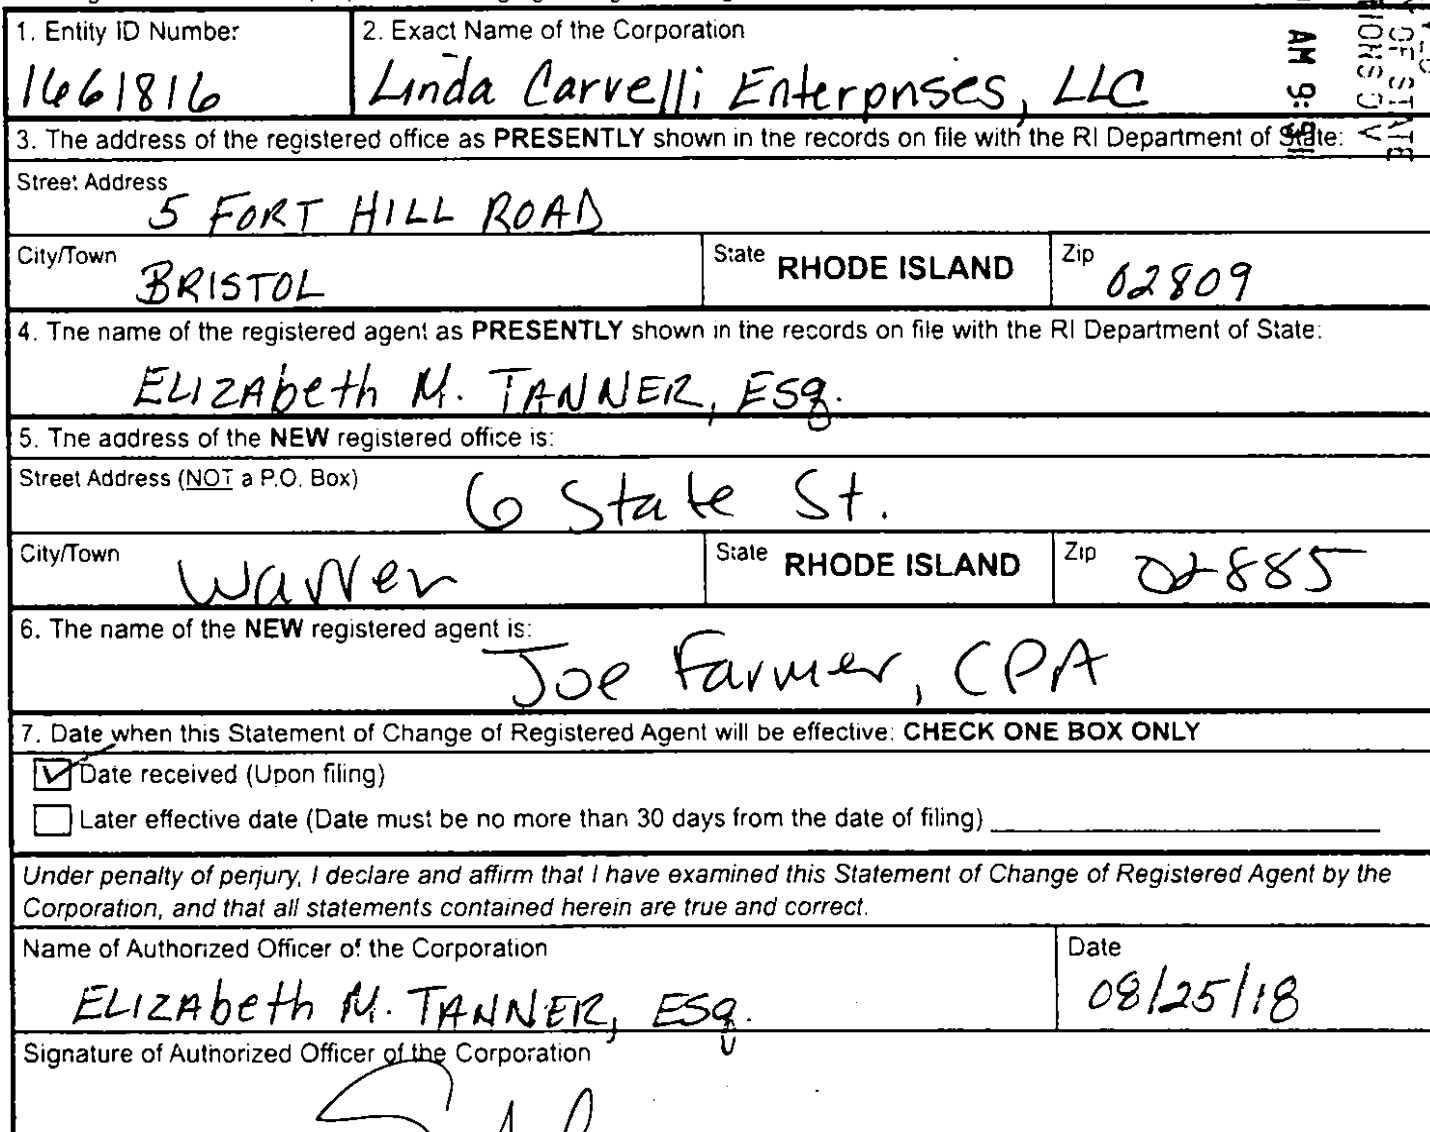 1. Entity ID Number
1661816
2. Exact Name of the Corporation
Linda Carvelli Enterprises, LLC
AM 9:
OF STATE
3. The address of the registered office as PRESENTLY shown in the records on file with the RI Department of State:
Street Address
5 FORT HILL ROAD
City/Town
BRISTOL
State RHODE ISLAND
Zip
02809
4. The name of the registered agent as PRESENTLY shown in the records on file with the RI Department of State:
ELIZAbeth M. TANNER, ESq.
5. The address of the NEW registered office is:
Street Address (NOT a P.O. Box)
6 State St.
City/Town
Warren
State RHODE ISLAND
Zip
02885
6. The name of the NEW registered agent is:
Joe Farmer, CPA
7. Date when this Statement of Change of Registered Agent will be effective: CHECK ONE BOX ONLY
Date received (Upon filing)
Later effective date (Date must be no more than 30 days from the date of filing)
Under penalty of perjury, I declare and affirm that I have examined this Statement of Change of Registered Agent by the
Corporation, and that all statements contained herein are true and correct.
Name of Authorized Officer of the Corporation
ELIZAbeth M. TANNER, ESq.
Date
08/25/18
Signature of Authorized Officer of the Corporation